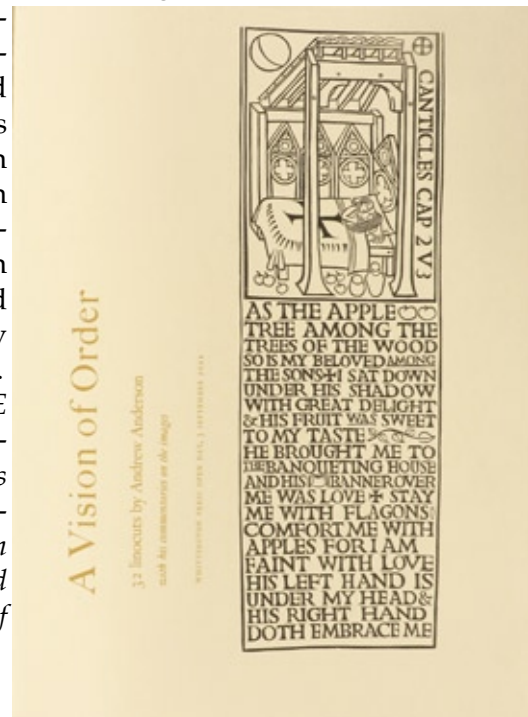 A Vision of Order
32 linocuts by Andrew Anderson
with his commentaries on the images
WHITTINGTON PRESS OPEN DAY, 3 SEPTEMBER
CANTICLES CAP 2 V 3
AS THE APPLE
TREE AMONG THE
TREES OF THE WOOD
SO IS MY BELOVED AMONG
THE SONS I SAT DOWN
UNDER HIS SHADOW
WITH GREAT DELIGHT
& HIS FRUIT WAS SWEET
TO MY TASTE
HE BROUGHT ME TO
THE BANQUETING HOUSE
AND HIS BANNER OVER
ME WAS LOVE STAY
ME WITH FLAGONS
COMFORT ME WITH
APPLES FOR I AM
FAINT WITH LOVE
HIS LEFT HAND IS
UNDER MY HEAD &
HIS RIGHT HAND
DOTH EMBRACE ME